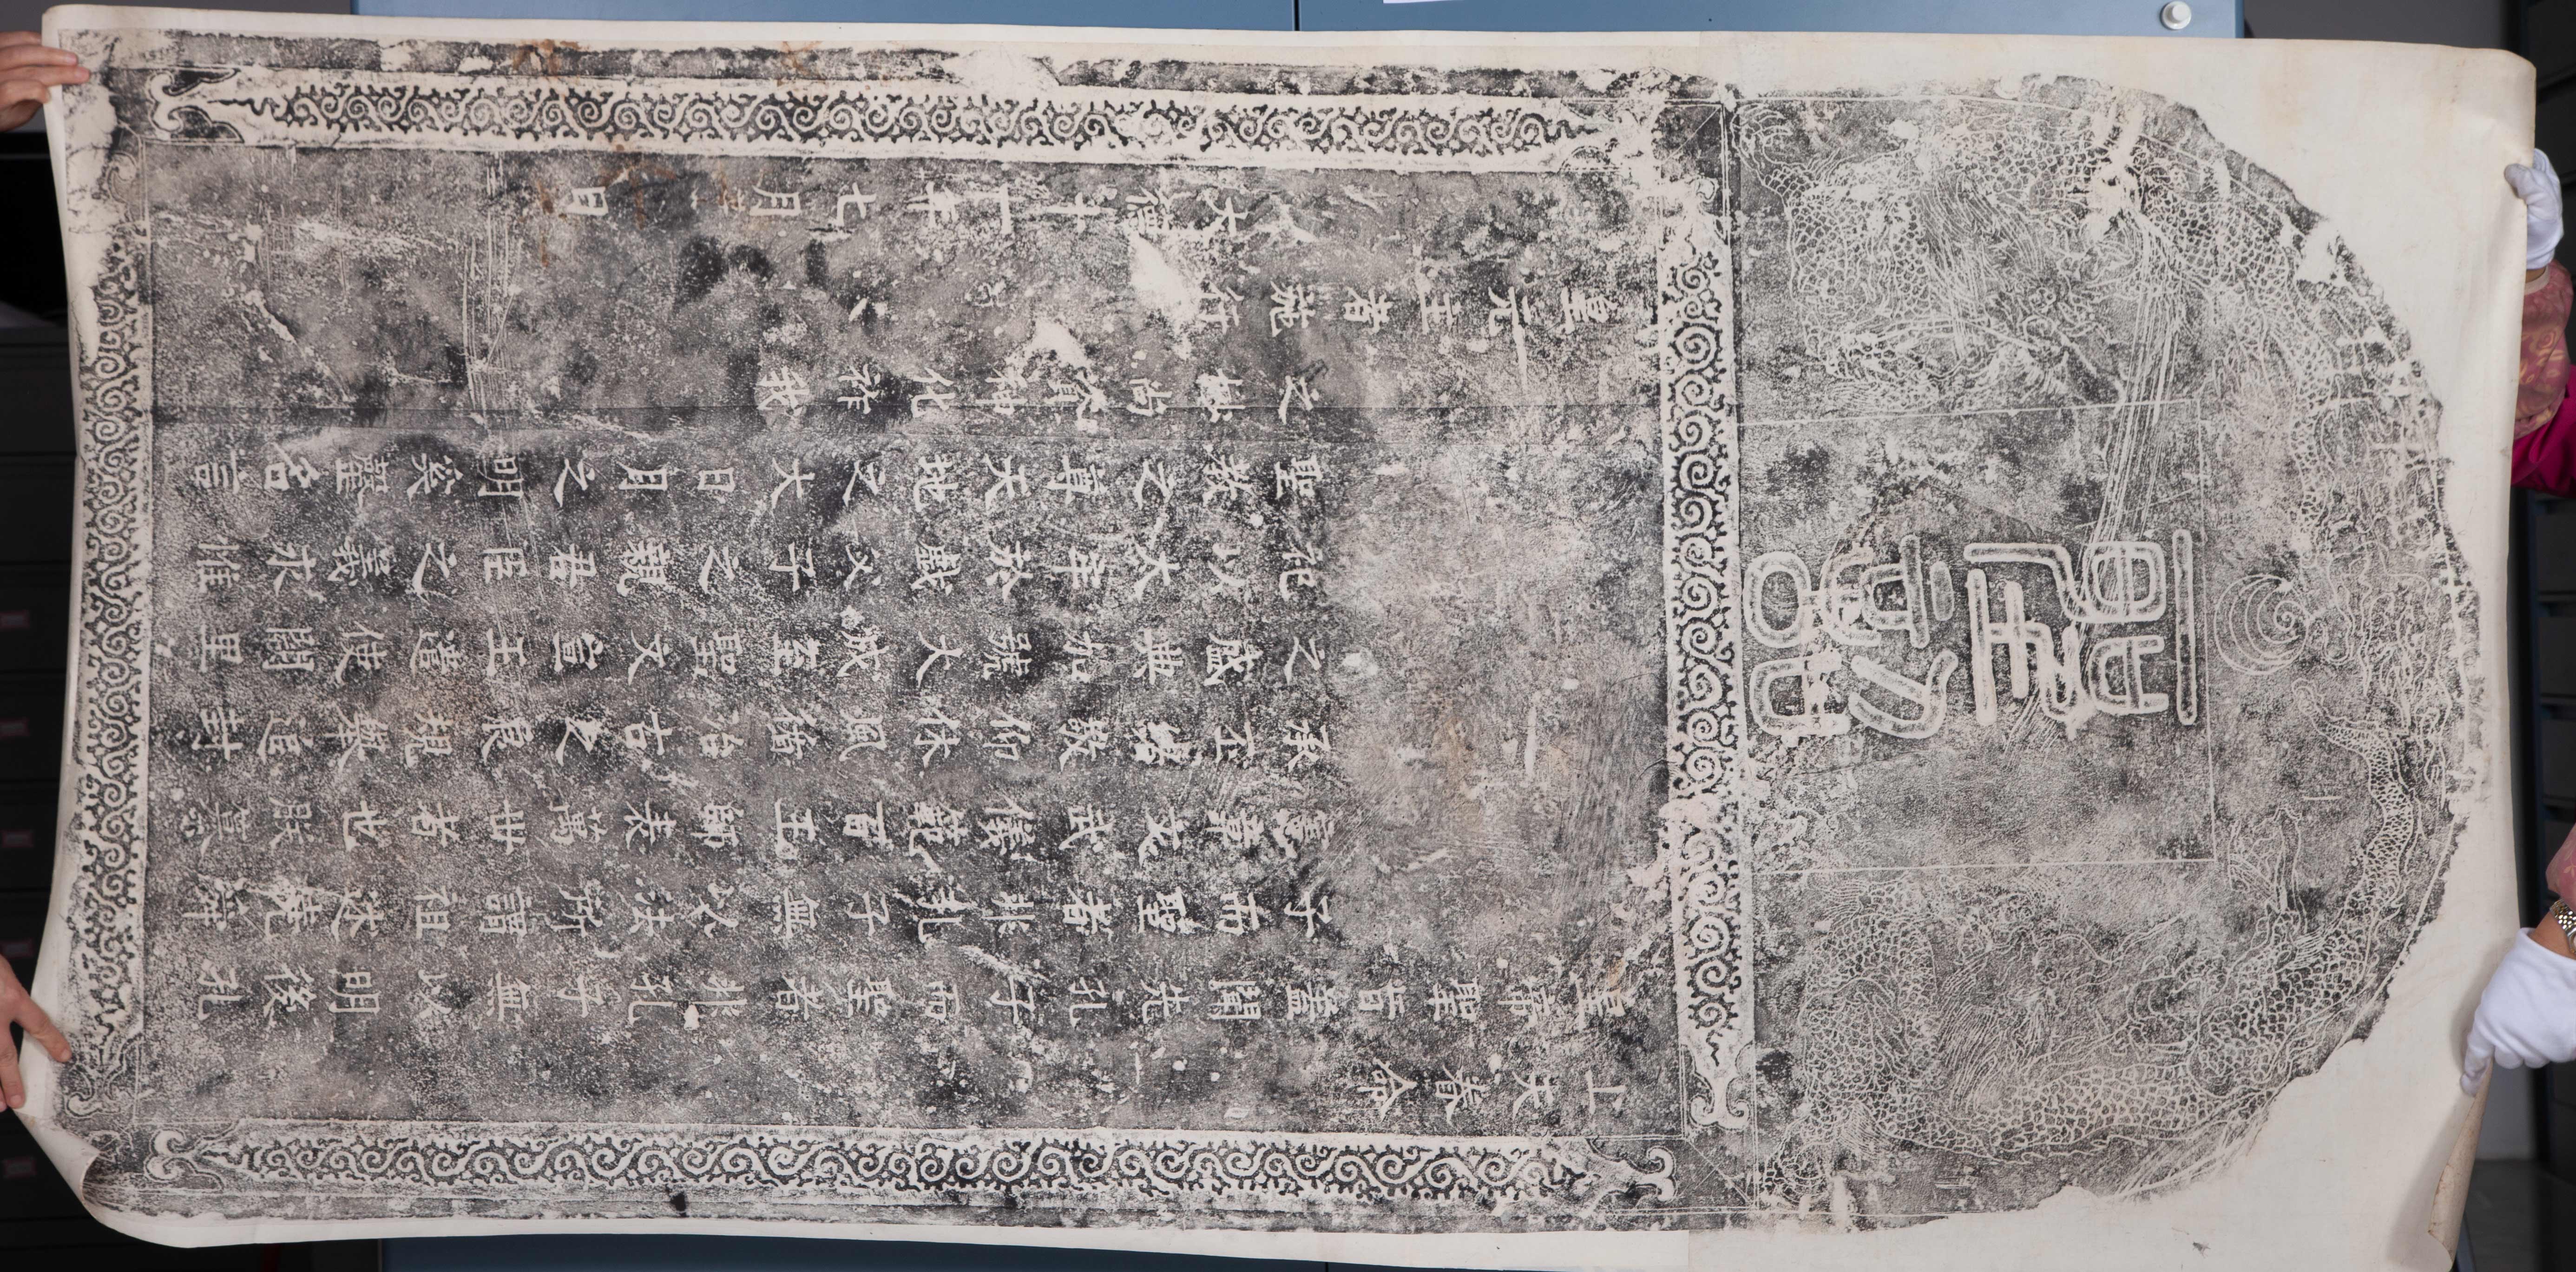 聖詔
上天眷命
皇帝聖旨蓋聞先孔子而聖者非孔子無以明後孔
子而聖者非孔子無以法所謂祖述堯舜
憲章文武儀範百王師表萬世者也朕纂
承丕緒敬仰休風循治古之良規舉追封
之盛典加號大成至聖文宣王遣使闕里
祀以太牢於戲父子之親君臣之義永惟
聖教之尊天地之大日月之明奚罄名言
之妙尚資神化祚我
皇元主者施行
大德十一年七月日